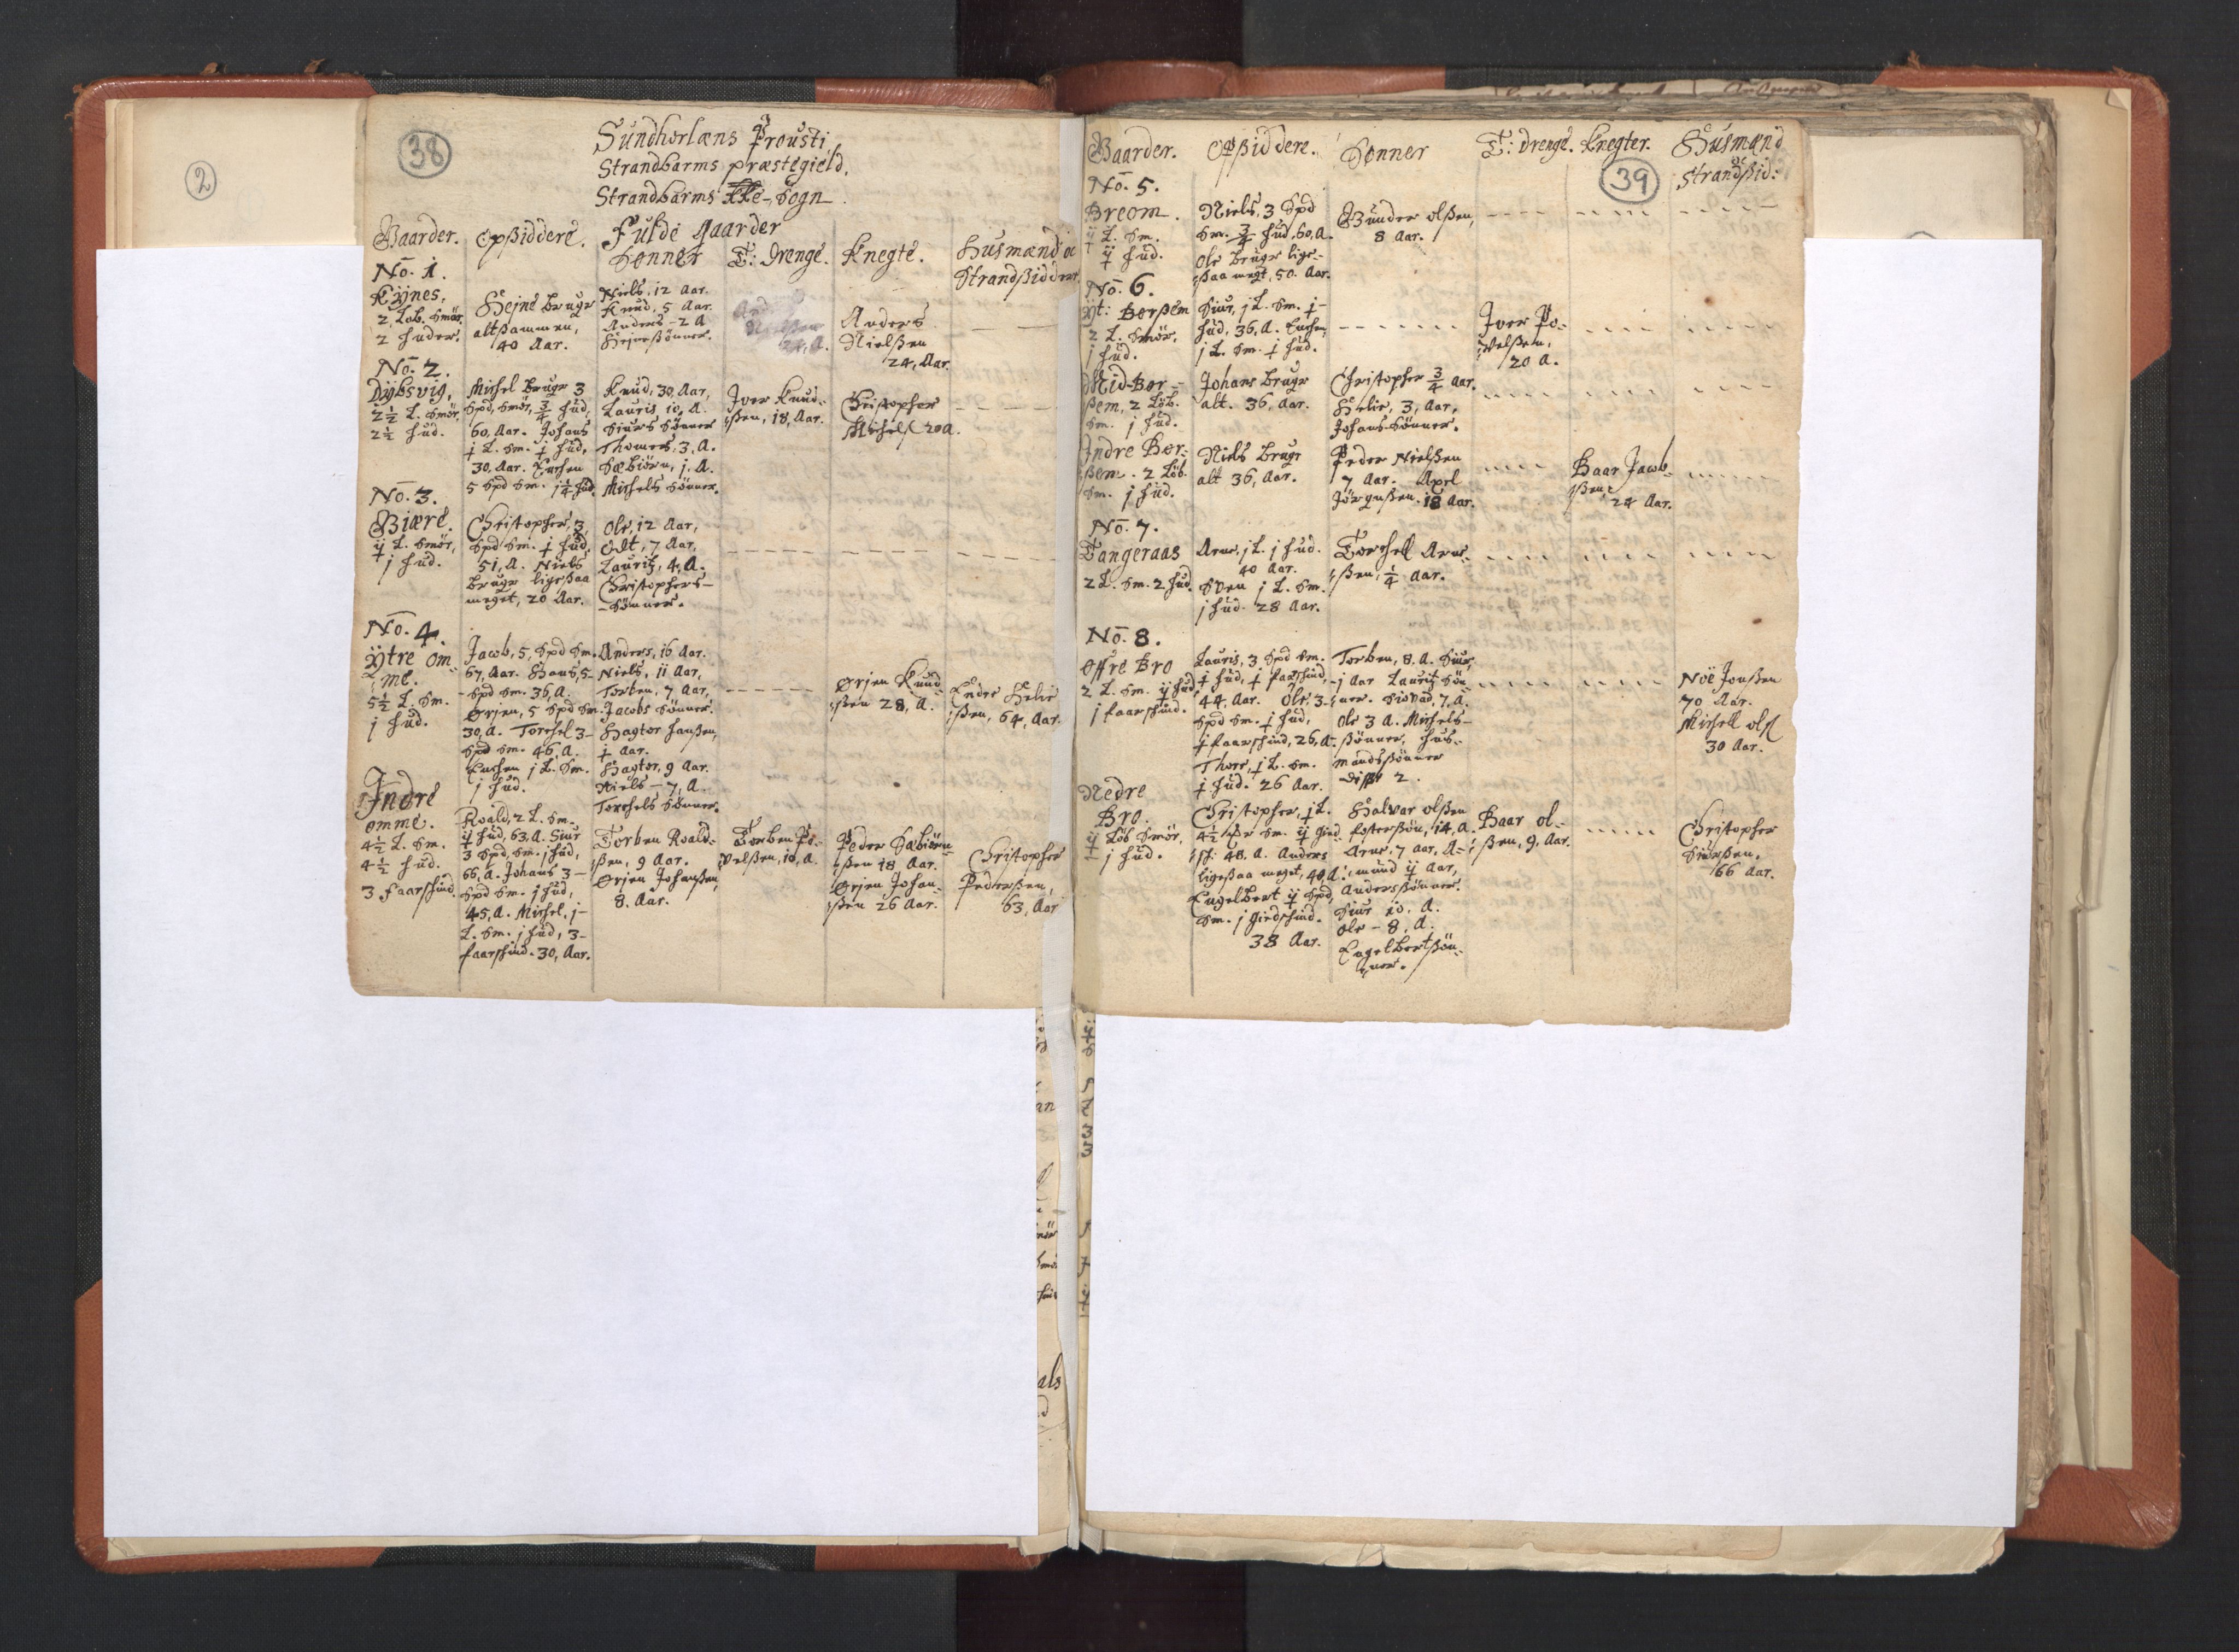 2
38
Sundhorlæns Prousti,
Strandbarms præstegield.
Strandbarms Kke-Sogn.
Fulde gaarder
Gaarder. Opßiddere. Sønner T: Drenge. Knegte. Husmænd oc Strandßiddere
No. 1.
Kÿnes,
2. Løb. Smør,
2 huder.
Hejne bruger
altsammen,
40 Aar.
Niels, 12 Aar.
Knud, 5 Aar.
Anders - 2 A
Hejnessønner.
Anders
Nielßen
24, Aar.
No. 2.
Dÿbsvig,
2½ L. Smør,
2½ hud.
Michel bruger 3
Spd, Smør, ¾ hud,
60, Aar. Johans
30, Aar. Enchen
5 Spd Sm. 1¼ hud.
Knud, 30, Aar,
Lauris 10, A.
Siurs Sønner
Thomes, 3, A.
Sæbiørn, j. A.
Michels Sønner.
Iver Knud-
ßen, 18, Aar.
Christopher
Michelß 20 A.
No. 3.
Biære.
L. Smør,
j hud.
Christopher, 3
51, A. Niels
bruger ligeßaa
meget, 20 Aar.
Ole, 12 Aar,
Odt, 7 Aar,
Lauritz, 4, A.
Christophers-
-Sønner.
No. 4.
Ÿtre Om-
me.
5½ L. Sm.
j hud.
Jacob, 5, Spd Sm.
67, Aar. Hans, 5-
-Spd Sm. 36, A.
Ørjen, 5 Spd Sm.
30, A. Torchel 3-
Spd Sm. 46, A.
Enchen j L. Sm.
j hud.
Anders, 16 Aar.
Niels, 11 Aar,
Torben, 7 Aar,
Jacobs Sønner.
Hagtor Hanßen,
Hagtor, 9 Aar.
Niels - 7, A.
Torchels Sønner.
Ørjen Knud-
ßen 28, A.
Endre Helie-
ßen, 64, Aar.
Indre
Omme.
4½ L. Sm.
4½ hud.
3 faarskind.
Roald, 2 L. Sm.
hud, 63, A. Siur
3 Spd, Sm. j hud,
66, A. Johans 3-
Spd Sm. j hud,
45, A. Michel, j-
L. Sm. j hud, 3-
faarskind. 30, Aar.
Torben Roald-
ßen, 9 Aar.
Ørjen Johanßen,
8. Aar.
Torben Po-
velßen, 10, A.
Peder Sæbiørn-
ßen 18 Aar.
Ørjen Johan-
ßen 26 Aar.
Christopher
Pederßen,
63, Aar
Gaarder. Opßiddere. Sønner T: Drenge. Knegter. Husmænd oc
39
Strandßid:
No. 5.
Breom.
L. Sm.
hud.
Niels, 3 Spd
Sm. ¾ hud, 60, A.
Ole bruger lige-
ßaa megt, 50. Aar.
Gunder Olßen,
8 Aar.
No. 6.
Ÿt: Børßem
2 L. Smør,
j hud.
hud, 36, A. Enchen
Iver Po-
velßen,
20 A.
Mid-Bør-
ßem, 2 Løb.
Sm. j hud.
Johans bruger
alt. 36, Aar.
Christopher ¾ Aar.
Helie, 3, Aar,
Johans-Sønner.
Indre Bør-
ßem. 2 Løb.
Sm. j hud.
Niels bruger
alt 36, Aar.
Peder Nielßen
7 Aar. Axel
Jørgenßen. 18 Aar.
Baar Jacob-
ßen,
24 Aar.
No. 7.
Tangeraas
2 L. Sm. 2 hud.
Arne, j L. j hud.
40 Aar.
Sven j L. Sm.
j hud. 28 Aar.
Torchell Arne-
ßen, ¼ Aar.
No. 8.
Øffre Bro
2 L. Sm. hud
j faarskind.
Lauris, 3 Spd Sm.
44, Aar. Ole, 3-
Spd Sm. hud,
faarskind, 26, A.
Thore, L. Sm.
hud. 26 Aar.
Torben, 8. A. Siur,
-j Aar Lauritz Søn-
ner. Siovad, 7, A.
Ole 3 A. Michels-
ßønner, hus-
mandsßønner
disße 2.
Noë Jonßen
70 Aar.
Michell Olß
30 Aar.
Nedre
Bro.
Løb Smør,
j hud.
Christopher,
48, A. Anders
ligeßaa meget, 40, A.
Engelbert Spd,
Sm. j Giedskind.
38 Aar.
Halvar Olßen
fosterßøn, 14, A.
Arne, 7 Aar, A-
mund Aar,
Andersßønner.
Siur 10. A.
Ole - 8, A.
Engelbertßøn-
ner.
Baar Ol-
ßen, 9. Aar.
Christopher
Siurßen.
66 Aar.